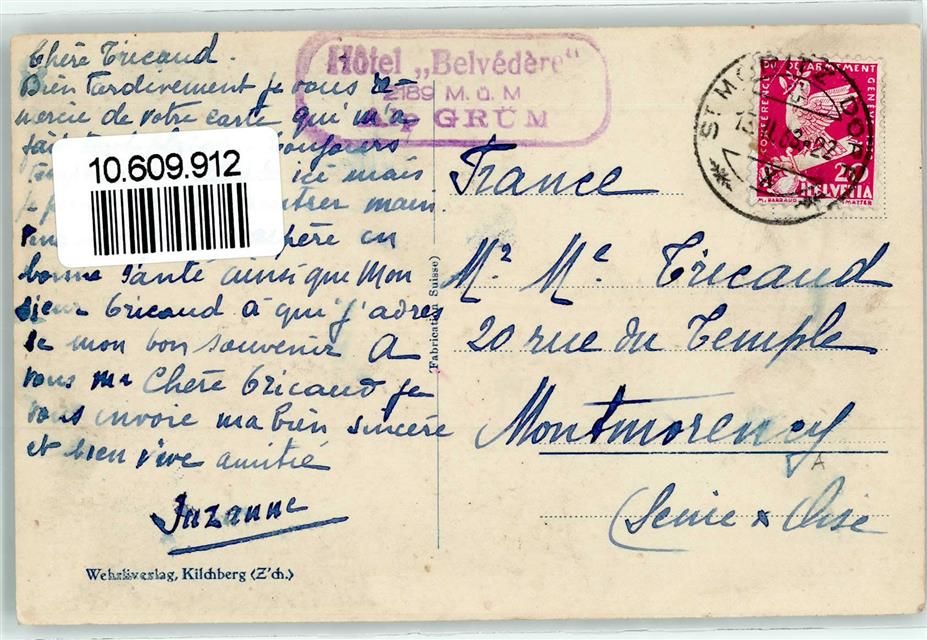 Chère Tricaud.
Bien tardivement je vous re
mercie de votre carte qui m'a
fait
toujours
ici mais
main
espère en
bonne Santé ainsi que Mon
sieur Tricaud à qui j'adres
se mon bon souvenir A
vous ma Chère Tricaud je
vous envoie ma bien sincère
et bien vive amitié
Suzanne
Wehrliverlag, Kilchberg (Z'ch.)
10.609.912
(Fabrication Suisse)
Hôtel „Belvédère"
2189 M. ü. M
ALP GRÜM
ST. MORITZ DORF
CONFERENCE DU DESARMEMENT GENEVE
20
HELVETIA
M. BARRAUD
France
Mr Me Tricaud
20 rue du Temple
Montmorency
A
(Seine & Oise